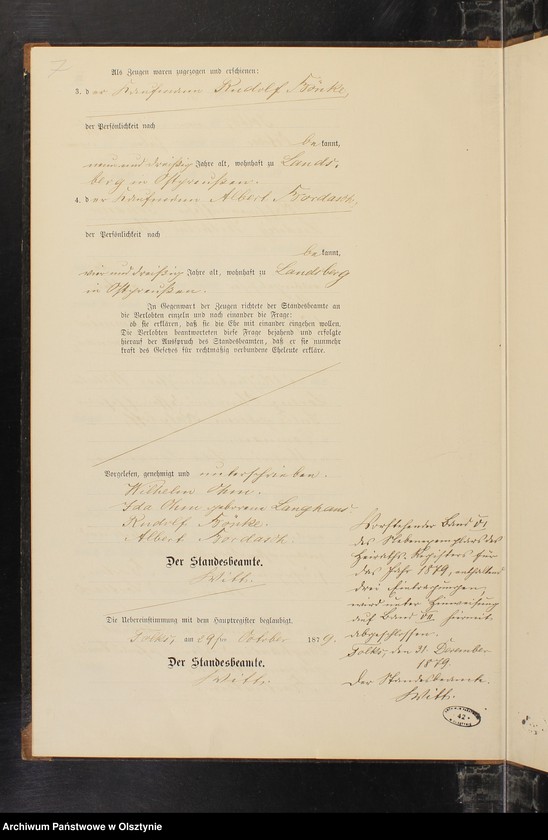 7
Als Zeugen waren zugezogen und erschienen:
3. der Kaufmann Rudolf Bönke,
der Persönlichkeit nach
bekannt,
neun und dreißig Jahre alt, wohnhaft zu Lands-
berg in Ostpreußen.
4. der Kaufmann Albert Bordasch,
der Persönlichkeit nach
bekannt,
vier und dreißig Jahre alt, wohnhaft zu Landsberg
in Ostpreußen.
In Gegenwart der Zeugen richtete der Standesbeamte an
die Verlobten einzeln und nach einander die Frage:
ob sie erklären, daß sie die Ehe mit einander eingehen wollen.
Die Verlobten beantworteten diese Frage bejahend und erfolgte
hierauf der Ausspruch des Standesbeamten, daß er sie nunmehr
kraft des Gesetzes für rechtmäßig verbundene Eheleute erkläre.
Vorgelesen, genehmigt und unterschrieben.
Wilhelm Ohm.
Ida Ohm geborene Langhans.
Rudolf Bönke.
Albert Bordasch.
Der Standesbeamte.
Witt.
Die Uebereinstimmung mit dem Hauptregister beglaubigt.
Tolks, am 29ten October 1879.
Der Standesbeamte.
Witt.
Vorstehender Band
des Nebenexemplars des
Heiraths-Registers für
das Jahr 1879, enthaltend
drei Eintragungen,
wird unter Hinweisung
auf Band hiermit
abgeschlossen.
Tolks, den 31. December
1879.
Der Standesbeamte.
Witt.
42
Archiwum Państwowe w Olsztynie